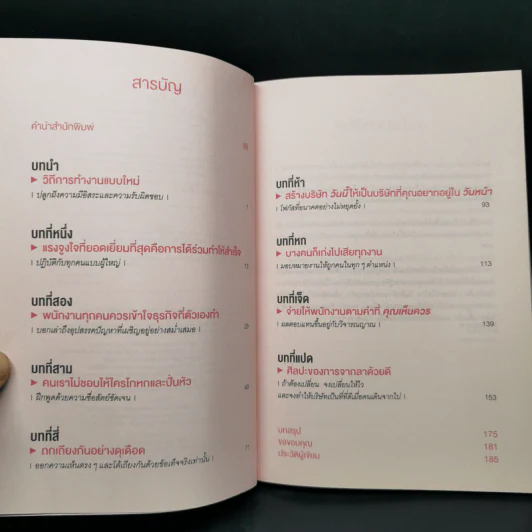 สารบัญ
คำนำสำนักพิมพ์
บทนำ
▶ วิถีการทำงานแบบใหม่
| ปลูกฝังความมีอิสระและความรับผิดชอบ | 1
บทที่หนึ่ง
▶ แรงจูงใจที่ยอดเยี่ยมที่สุดคือการได้ร่วมทำให้สำเร็จ
| ปฏิบัติกับทุกคนแบบผู้ใหญ่ |
บทที่สอง
▶ พนักงานทุกคนควรเข้าใจธุรกิจที่ตัวเองทำ
| บอกเล่าถึงอุปสรรคปัญหาที่เผชิญอยู่อย่างสม่ำเสมอ |
บทที่สาม
▶ คนเราไม่ชอบให้ใครโกหกและปั่นหัว
| ฝึกพูดด้วยความซื่อสัตย์ชัดเจน |
บทที่สี่
▶ ถกเถียงกันอย่างดุเดือด
| ออกความเห็นตรง ๆ และโต้เถียงกันด้วยข้อเท็จจริงเท่านั้น | 71
บทที่ห้า
▶ สร้างบริษัท วันนี้ ให้เป็นบริษัทที่คุณอยากอยู่ใน วันหน้า
| โฟกัสที่อนาคตอย่างไม่หยุดยั้ง | 93
บทที่หก
▶ บางคนก็เก่งไปเสียทุกงาน
| มอบหมายงานให้ถูกคนในทุก ๆ ตำแหน่ง | 113
บทที่เจ็ด
▶ จ่ายให้พนักงานตามค่าที่ คุณเห็นควร
| ผลตอบแทนขึ้นอยู่กับวิจารณญาณ | 139
บทที่แปด
▶ ศิลปะของการจากลาด้วยดี
| ถ้าต้องเปลี่ยน จงเปลี่ยนให้ไว
และจงทำให้บริษัทเป็นที่ที่ดีเมื่อคนเดินจากไป | 153
บทสรุป 175
ขอขอบคุณ 181
ประวัติผู้เขียน 185